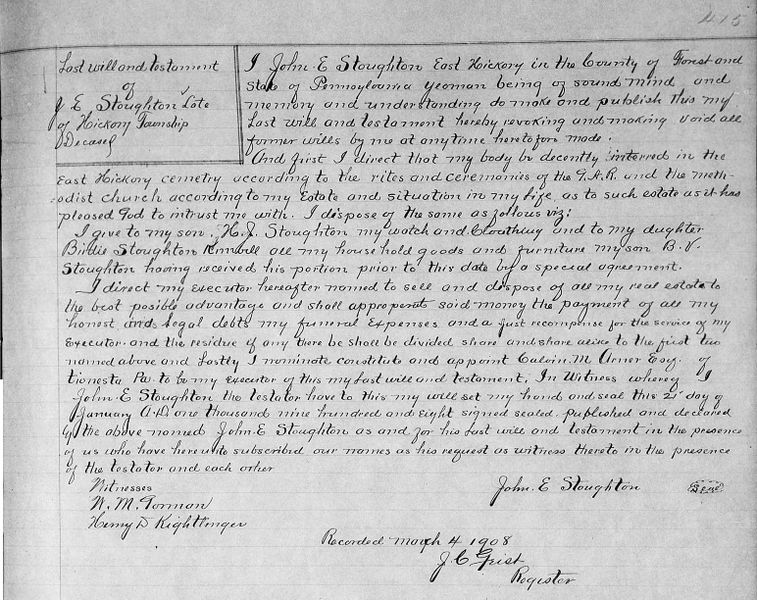 415
Last will and testament
of
J E Stoughton Late
of Hickory Township
Deceased
I John. E Stoughton East Hickory in the County of Forest and
State of Pennsylvania yeoman being of sound mind and
memory and understanding do make and publish this my
Last will and testament hereby revoking and making void all
former wills by me at anytime heretofore made.
And first I direct that my body be decently interred in the
East Hickory cemetry according to the rites and ceremonies of the G.A.R and the meth-
odist church according to my Estate and situation in my life as to such estate as it has
pleased God to intrust me with. I dispose of the same as follows viz:
I give to my son, H. J. Stoughton my watch and Cloathing and to my dughter
Birdie Stoughton all my household goods and furniture my son B. V.
Stoughton having received his portion prior to this date by a special agreement.
I direct my executor hereafter named to sell and dispose of all my real estate to
the best posible advantage and shall said money the payment of all my
honest and legal debts my funeral Expenses and a just recompense for the service of my
Executor and the residue if any there be shall be divided share and share alike to the first two
named above and Lastly I nominate constitute and appoint Calvin. M Arner Esq. of
tionesta Pa. to be my executor of this my last will and testament. In Witness whereof I
John. E Stoughton the testator have to this my will set my hand and seal this 21st day of
January A.D. one thousand nine hundred and Eight signed sealed published and declared
by the above named John. E Stoughton as and for his last will and testament in the presence
of us who have hereunto subscribed our names as his request as witness thereto in the presence
of the testator and each other
Witnesses
John. E Stoughton Seal
W. M. Gorman
Henry D Kightlinger
Recorded March 4 1908
J. C. Geist
Register